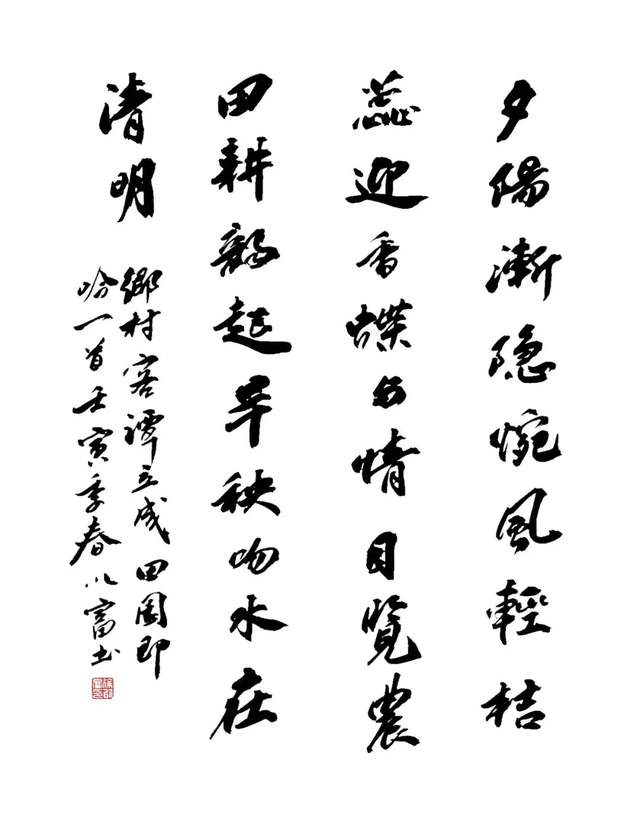 夕陽漸隐惋風輕桔
蕊迎香蝶与情目覽農
田耕韵起早秧吻水在
清明
鄉村客譚立成田園即
吟一首壬寅季春富书